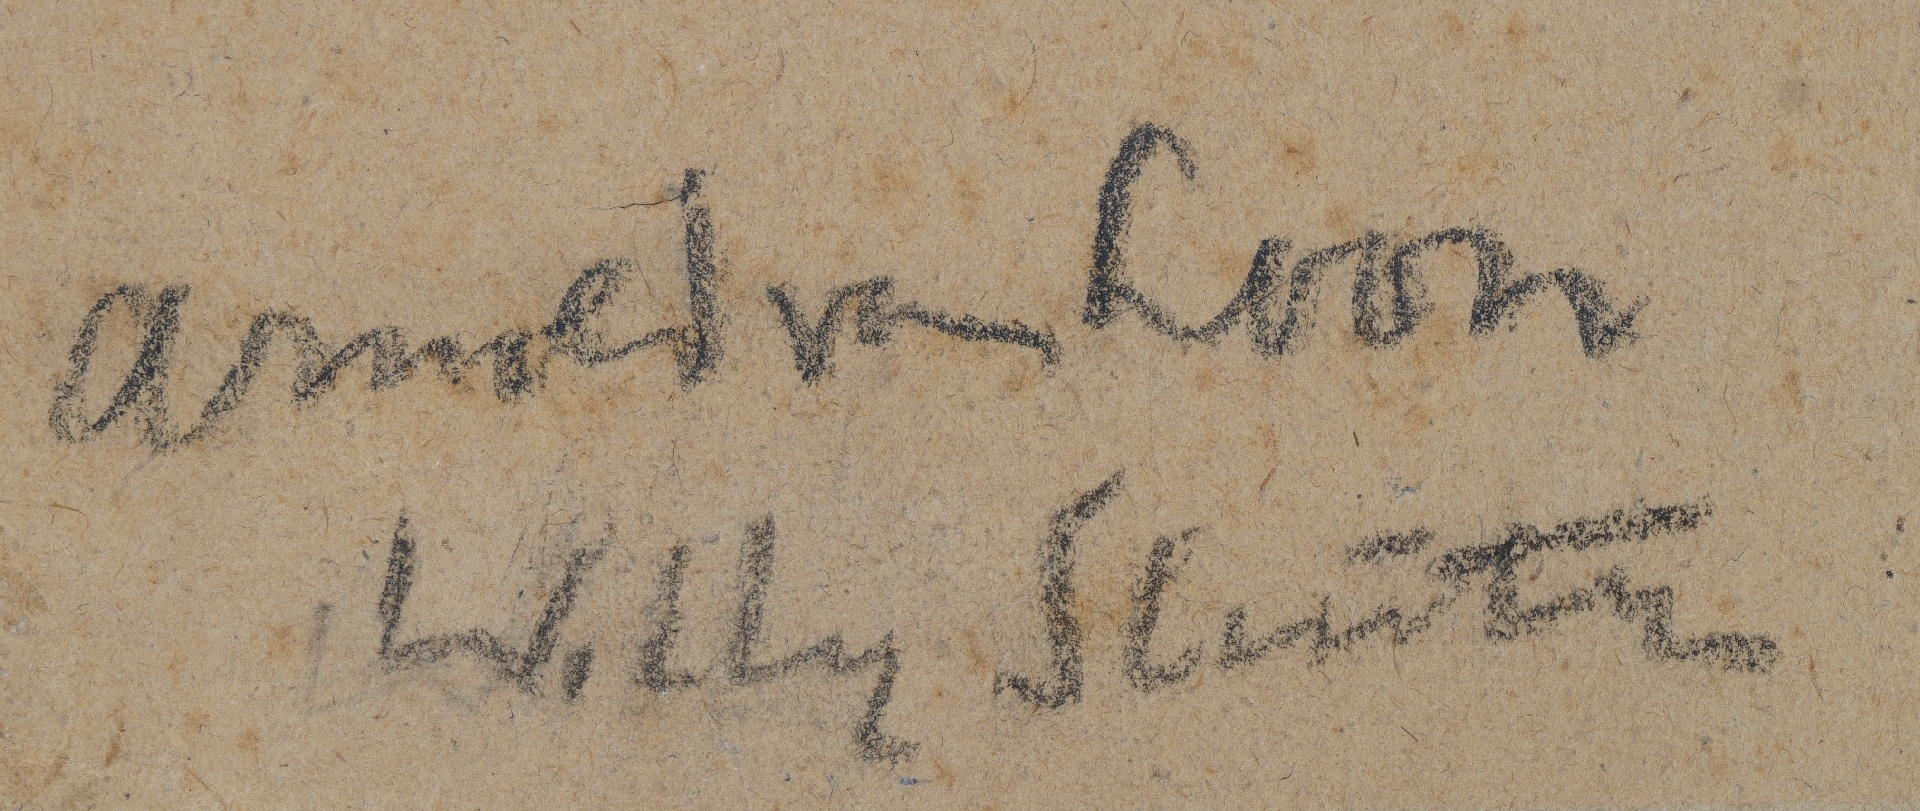 Arnold van Loon
Willy Sluiter